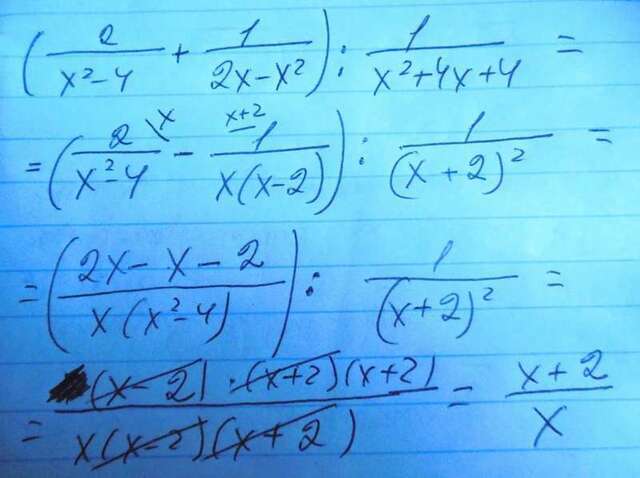 (2/(x²-4) + 1/(2x-x²)) : 1/(x²+4x+4) =
= (2\x/(x²-4) - x+2 1/(x(x-2))) : 1/(x+2)² =
= ((2x-x-2)/(x(x²-4))) : 1/(x+2)² =
= ((x-2)·(x+2)(x+2))/(x(x-2)(x+2)) = (x+2)/x